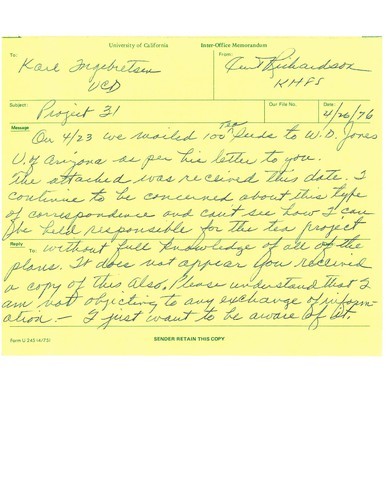 University of California Inter-Office Memorandum
To: From:
Karl Ingebretsen Curt Richardson
UCD KHFS
Subject: Our File No. Date:
Project 31 4/26/76
Message
On 4/23 we mailed 100 Tea Seeds to W.D. Jones
U. of Arizona as per his letter to you.
The attached was received this date. I
continue to be concerned about this type
of correspondence and can't see how I can
be held responsible for the tea project
Reply To:
without full knowledge of all of the
plans. It does not appear you received
a copy of this also. Please understand that I
am not objecting to any exchange of inform-
ation — I just want to be aware of it.
Form U 243 (4/73) SENDER RETAIN THIS COPY